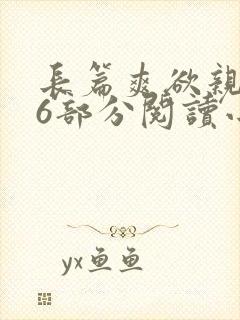 長篇爽欲親
6部分閱讀小
yx鱼鱼